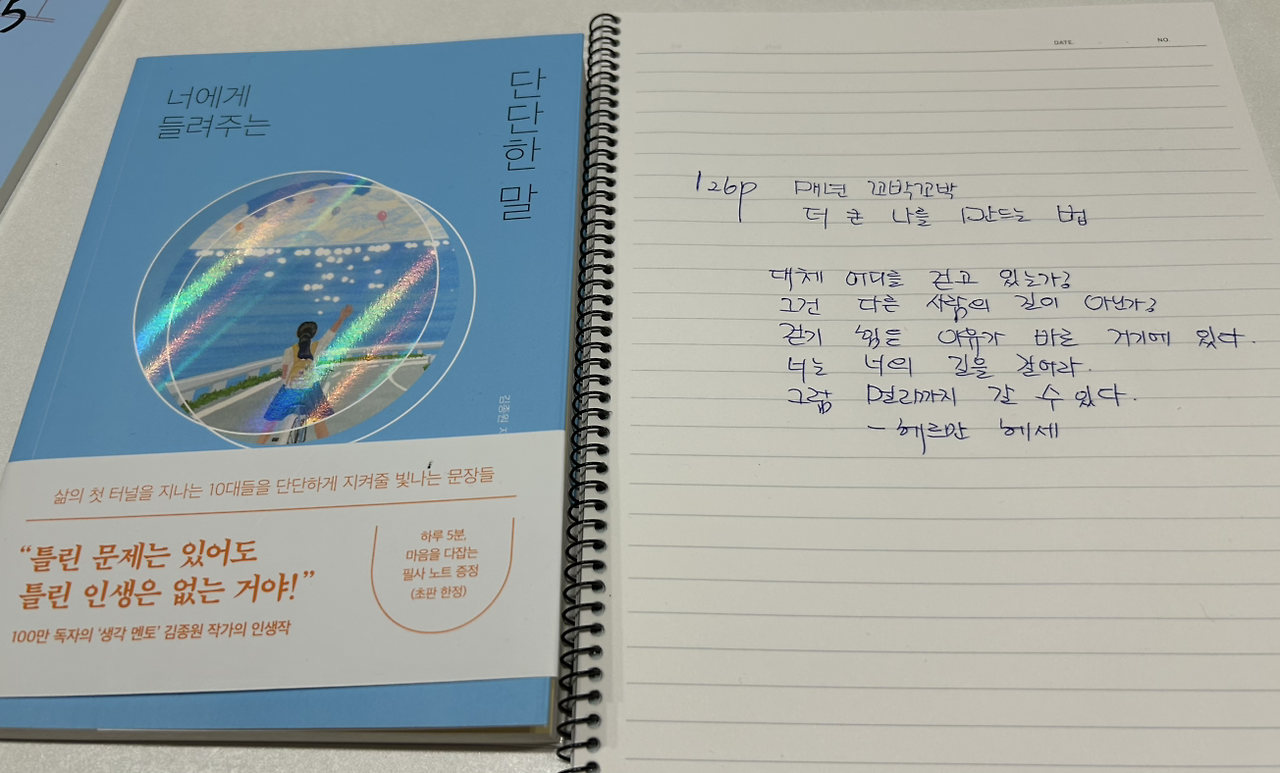 5
너에게
들려주는
단단한 말
김종원 지
삶의 첫 터널을 지나는 10대들을 단단하게 지켜줄 빛나는 문장들
“틀린 문제는 있어도
틀린 인생은 없는 거야!”
100만 독자의 ‘생각 멘토’ 김종원 작가의 인생작
하루 5분,
마음을 다잡는
필사 노트 증정
(초판 한정)
DATE.
NO.
126p 매년 꼬박꼬박
더 큰 나를 만드는 법
대체 어디를 걷고 있는가?
그건 다른 사람의 길이 아닌가?
걷기 힘든 이유가 바로 거기에 있다.
너는 너의 길을 걸어라.
그럼 멀리까지 갈 수 있다.
- 헤르만 헤세